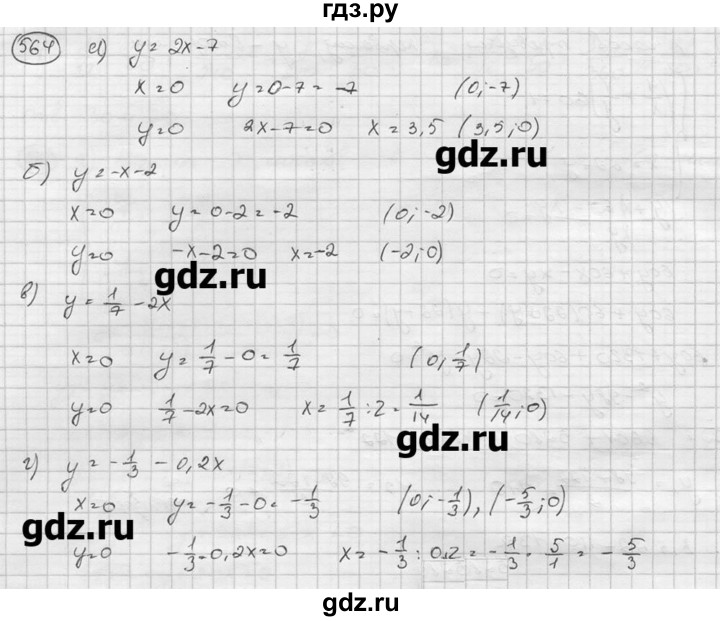 гдз.ру
564 а) y = 2x-7
x=0 y=0-7= -7 (0;-7)
y=0 2x-7=0 x=3,5 (3,5;0)
gdz.ru
б) y=-x-2
x=0 y=0-2=-2 (0;-2)
y=0 -x-2=0 x=-2 (-2;0)
gdz.ru
в) y = 1/7 - 2x
x=0 y = 1/7 - 0 = 1/7 (0; 1/7)
y=0 1/7 - 2x=0 x = 1/7 : 2 = 1/14 (1/14; 0)
gdz.ru
г) y = - 1/3 - 0,2x
x=0 y = - 1/3 - 0 = - 1/3 (0; - 1/3), (- 5/3; 0)
gdz.ru
y=0 - 1/3 - 0,2x=0 x = - 1/3 : 0,2 = - 1/3 · 5/1 = - 5/3
gdz.ru